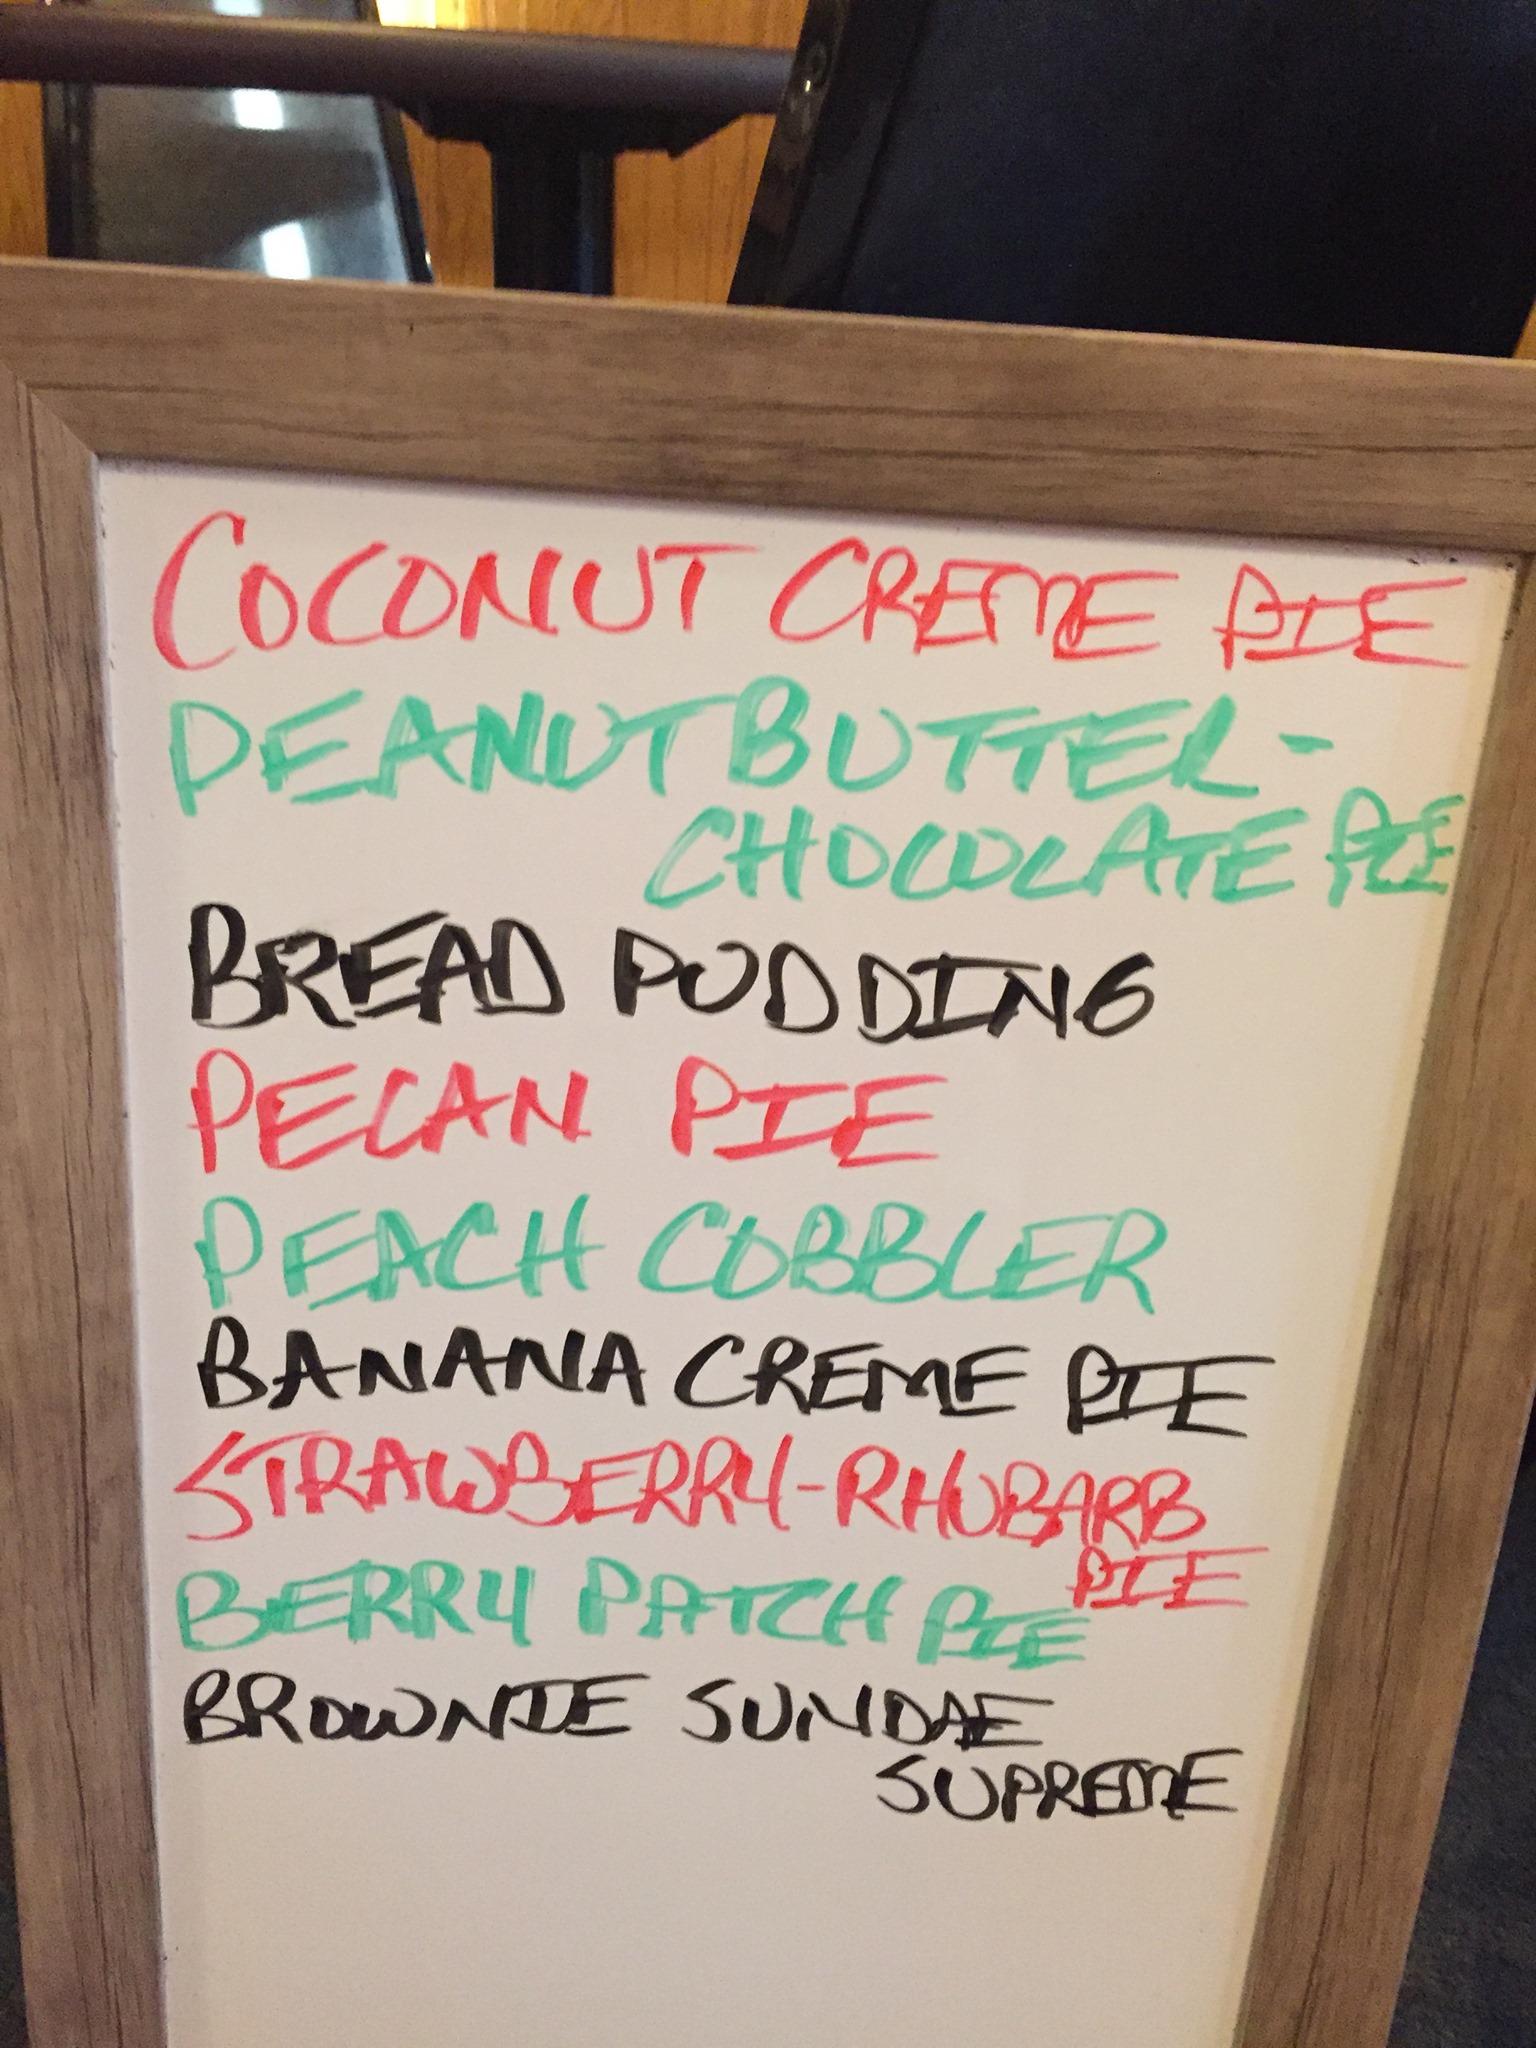 COCONUT CREME PIE
PEANUT BUTTER-
CHOCOLATE PIE
BREAD PUDDING
PECAN PIE
PEACH COBBLER
BANANA CREME PIE
STRAWBERRY-RHUBARB
PIE
BERRY PATCH PIE
BROWNIE SUNDAE
SUPREME